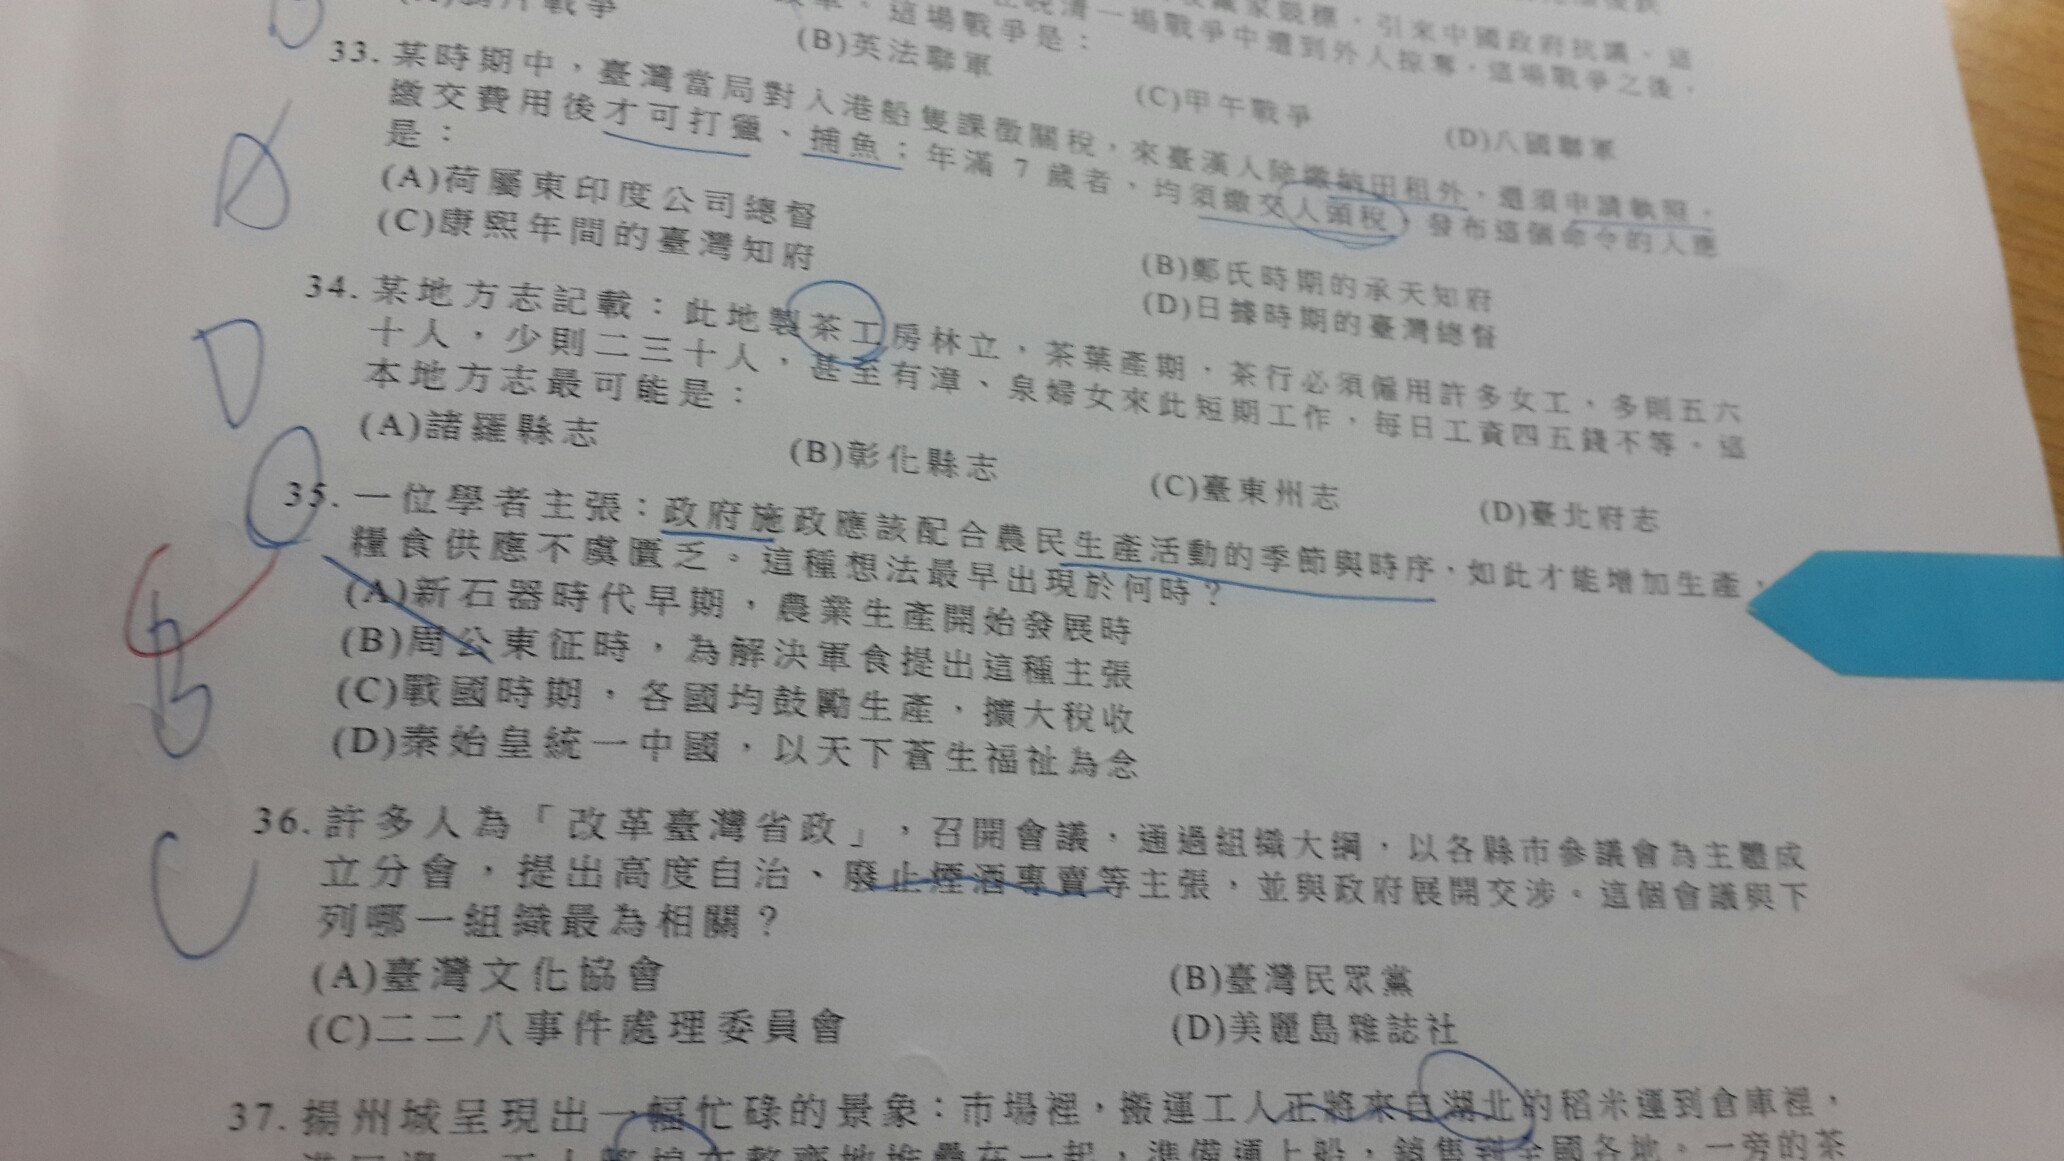 (B)英法聯軍
(C)甲午戰爭
(D)八國聯軍
33. 某時期中，臺灣當局對入港船隻課徵關稅，來臺漢人除繳納田租外，還須申請執照，
繳交費用後才可打獵、捕魚；年滿 7 歲者，均須繳交人頭稅，發布這個命令的人應
是：
(A)荷屬東印度公司總督
(B)鄭氏時期的承天知府
(C)康熙年間的臺灣知府
(D)日據時期的臺灣總督
34. 某地方志記載：此地製茶工房林立，茶葉產期，茶行必須僱用許多女工，多則五六
十人，少則二三十人，甚至有漳、泉婦女來此短期工作，每日工資四五錢不等。這
本地方志最可能是：
(A)諸羅縣志
(B)彰化縣志
(C)臺東州志
(D)臺北府志
35. 一位學者主張：政府施政應該配合農民生產活動的季節與時序，如此才能增加生產，
糧食供應不虞匱乏。這種想法最早出現於何時？
(A)新石器時代早期，農業生產開始發展時
(B)周公東征時，為解決軍食提出這種主張
(C)戰國時期，各國均鼓勵生產，擴大稅收
(D)秦始皇統一中國，以天下蒼生福祉為念
36. 許多人為「改革臺灣省政」，召開會議，通過組織大綱，以各縣市參議會為主體成
立分會，提出高度自治、廢止煙酒專賣等主張，並與政府展開交涉。這個會議與下
列哪一組織最為相關？
(A)臺灣文化協會
(B)臺灣民眾黨
(C)二二八事件處理委員會
(D)美麗島雜誌社
37. 揚州城呈現出一幅忙碌的景象：市場裡，搬運工人正將來自湖北的稻米運到倉庫裡，